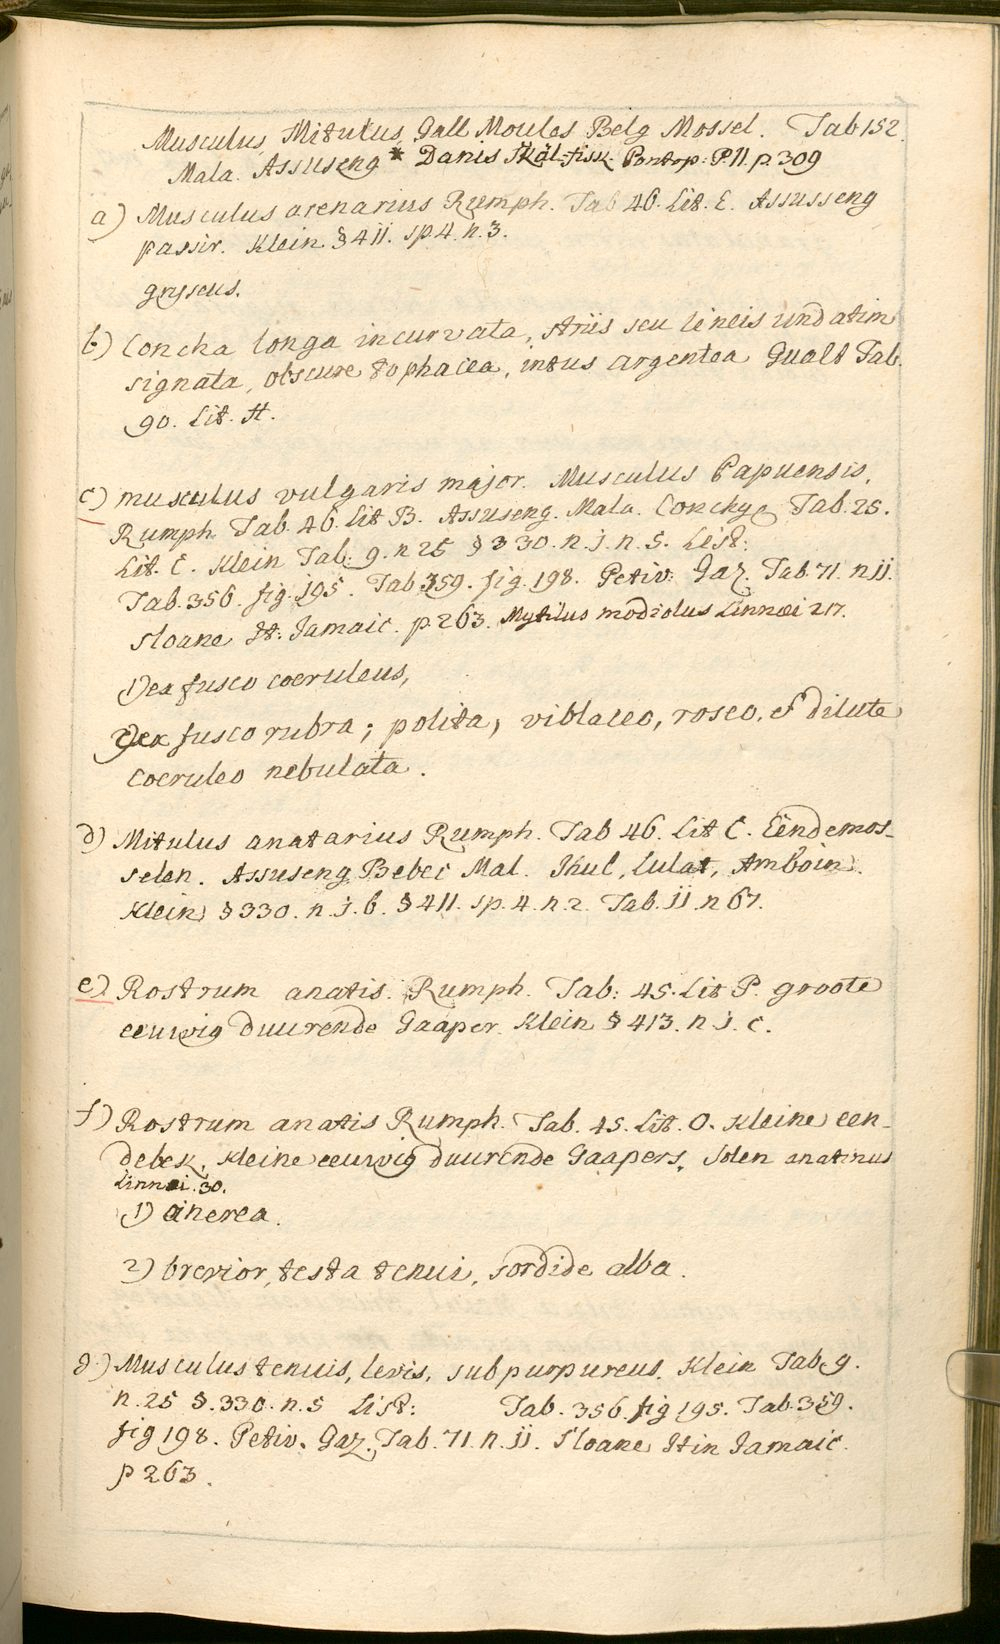 Musculus, Mitulus, Gall Moules Belg Mossel. Tab 152
Mala. Assuseng * Danis Skäl-fisk Pontop: P. II. p. 309
a) Musculus arenarius Rumph. Tab 46. Lit. E. Assusseng
passir. Klein § 411. sp. 4. n. 3.
gryseus.
b) Concha longa incurvata, striis seu lineis undatim
signata, obscure tophacea, intus argentea Gualt Tab.
90. Lit. H.
c) musculus vulgaris major. Musculus Papuensis,
Rumph. Tab. 46. Lit B. Assuseng. Mala. Conchyl Tab. 25.
Lit. E. Klein Tab. 9. n 25 § 330. n. j. n. 5. List:
Tab. 356. fig. 195. Tab 359. fig. 198. Petiv: Gaz. Tab. 71. n jj.
Sloane It: Jamaic. p. 263. Mytilus modiolus Linnæi 217.
1) ex fusco coeruleus,
2) ex fusco rubra; polita, violaceo, roseo, & dilute
coeruleo nebulata.
d) Mitulus anatarius Rumph. Tab 46. Lit C. Eendemos-
selen. Assuseng Bebec Mal. Ihul, lulat, Amboin.
Klein § 330. n. j. 6. § 411. sp. 4. n. 2. Tab. jj. n 67.
e) Rostrum anatis. Rumph. Tab: 45. Lit P. groote
eeuwig duurende Gaaper. Klein § 413. n. j. c.
f) Rostrum anatis Rumph. Tab. 45. Lit. O. Kleine een-
debek, Kleine eeuwig duurende Gaapers, Solen anatinus
Linnæi. 30.
1) cinerea.
2) brevior, testa tenui, sordide alba.
g.) Musculus tenuis, levis, subpurpureus. Klein Tab. 9.
n. 25 §. 330. n. 5 List: Tab. 356. fig 195. Tab. 359.
fig 198. Petiv. Gaz. Tab. 71. n. jj. Sloane Itin Jamaic.
p 263.